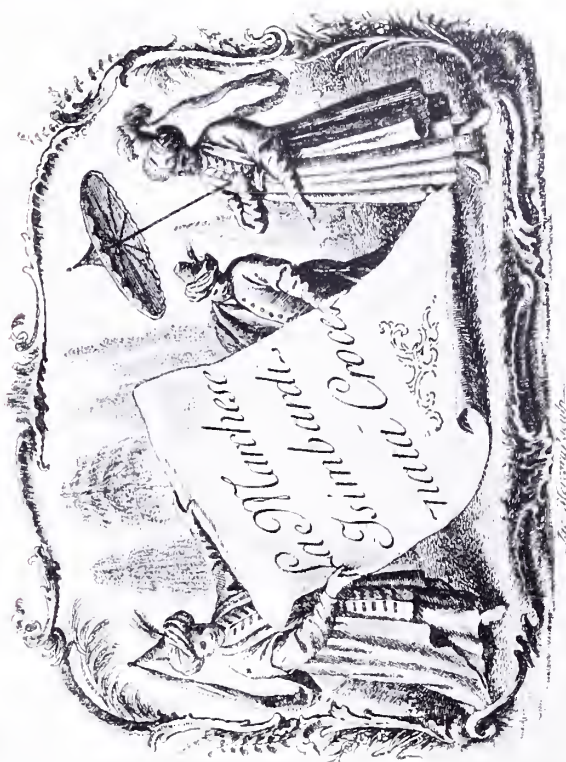 La Marchesa
Isimbardi-
nata Croce